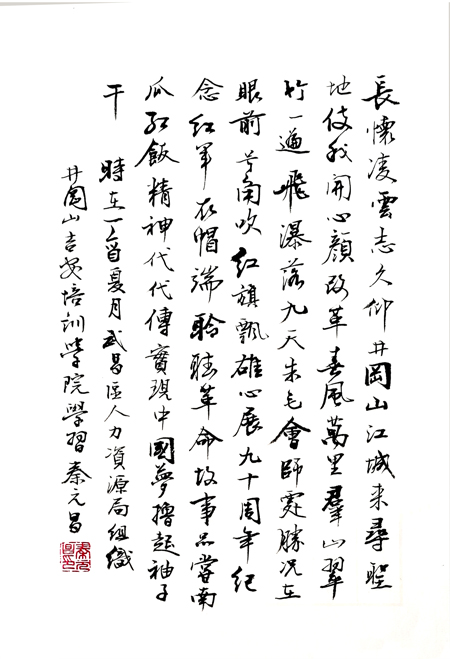 長懷凌雲志久仰井岡山江城来尋聖
地使我開心顔改革春風萬里羣山翠
竹一遍飛瀑落九天朱毛會師勝况在
眼前号角吹红旗飄雄心展九十周年紀
念红军衣帽端聆聽革命故事品嘗南
瓜红飯精神代代傳實現中國夢擼起袖子
干 時在丁酉夏月武昌区人力資源局組織
井岡山吉安培訓學院學習秦元昌